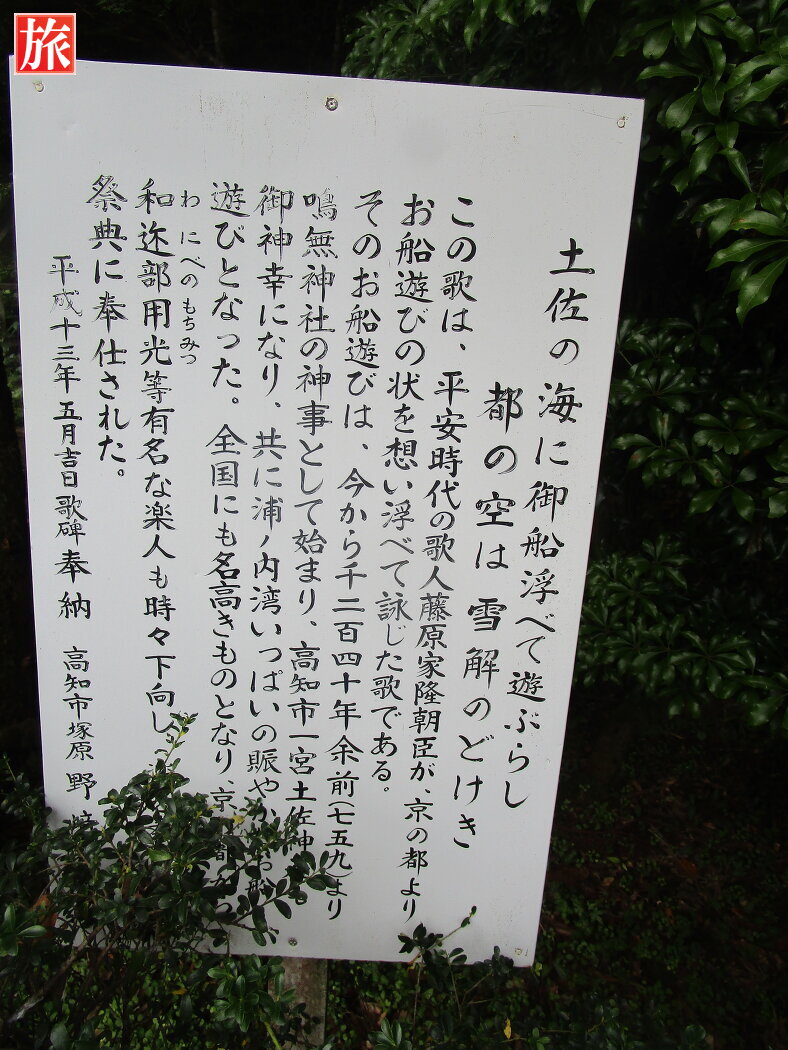 旅
土佐の海に御船浮べて遊ぶらし
都の空は雪解のどけき
この歌は、平安時代の歌人藤原家隆朝臣が、京の都より
お船遊びの状を想い浮べて詠じた歌である。
そのお船遊びは、今から千二百四十年余前(七五九)より
鳴無神社の神事として始まり、高知市一宮土佐神
御神幸になり、共に浦ノ内湾いっぱいの賑やかなお船
遊びとなった。全国にも名高きものとなり、京都から
わにべのもちみつ
和迩部用光等有名な楽人も時々下向し
祭典に奉仕された。
平成十三年五月吉日歌碑奉納 高知市塚原 野崎